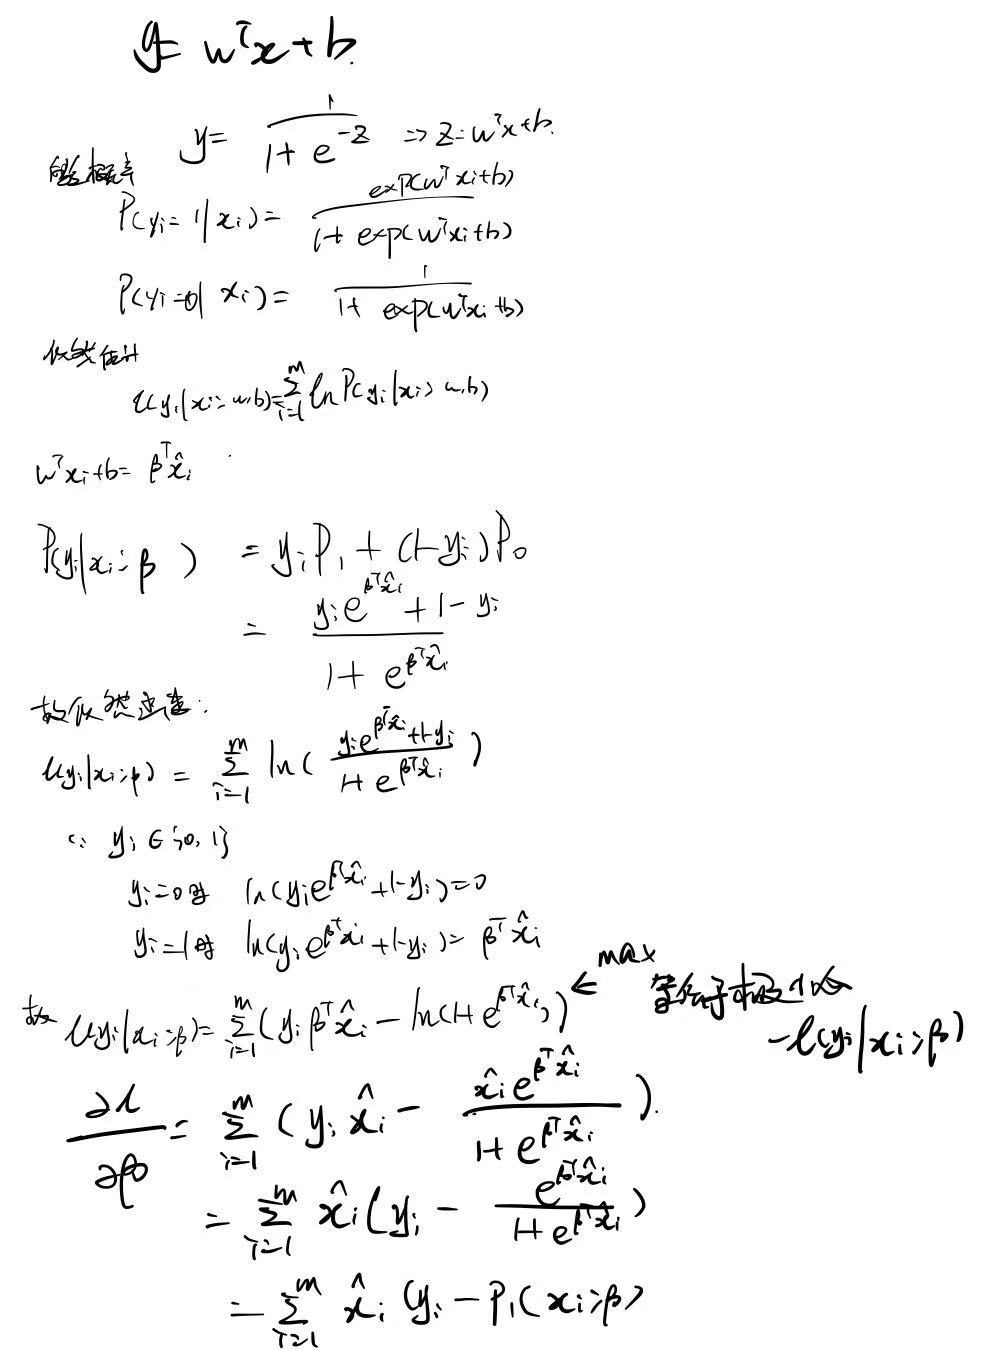 y = wᵀx + b.
y = 1 / (1 + e^(-z)) ⇒ z = wᵀx + b.
概率
P(yᵢ = 1 | xᵢ) = exp(wᵀxᵢ + b) / (1 + exp(wᵀxᵢ + b))
P(yᵢ = 0 | xᵢ) = 1 / (1 + exp(wᵀxᵢ + b))
似然估计
ℓ(yᵢ | xᵢ; w, b) = Σᵢ₌₁ᵐ ln P(yᵢ | xᵢ; w, b)
wᵀxᵢ + b = βᵀx̂ᵢ
P(yᵢ | xᵢ; β) = yᵢP₁ + (1 - yᵢ)P₀
= (yᵢe^(βᵀx̂ᵢ) + 1 - yᵢ) / (1 + e^(βᵀx̂ᵢ))
故似然函数:
ℓ(yᵢ | xᵢ; β) = Σᵢ₌₁ᵐ ln( (yᵢe^(βᵀx̂ᵢ) + 1 - yᵢ) / (1 + e^(βᵀx̂ᵢ)) )
∵ yᵢ ∈ {0, 1}
yᵢ = 0时 ln(yᵢe^(βᵀx̂ᵢ) + 1 - yᵢ) = 0
yᵢ = 1时 ln(yᵢe^(βᵀx̂ᵢ) + 1 - yᵢ) = βᵀx̂ᵢ
故 ℓ(yᵢ | xᵢ; β) = Σᵢ₌₁ᵐ (yᵢβᵀx̂ᵢ - ln(1 + e^(βᵀx̂ᵢ))) ← max 等价于求最小化
-ℓ(yᵢ | xᵢ; β)
∂ℓ/∂β = Σᵢ₌₁ᵐ (yᵢx̂ᵢ - x̂ᵢe^(βᵀx̂ᵢ) / (1 + e^(βᵀx̂ᵢ))).
= Σᵢ₌₁ᵐ x̂ᵢ(yᵢ - e^(βᵀx̂ᵢ) / (1 + e^(βᵀx̂ᵢ)))
= Σᵢ₌₁ᵐ x̂ᵢ(yᵢ - P₁(xᵢ; β)